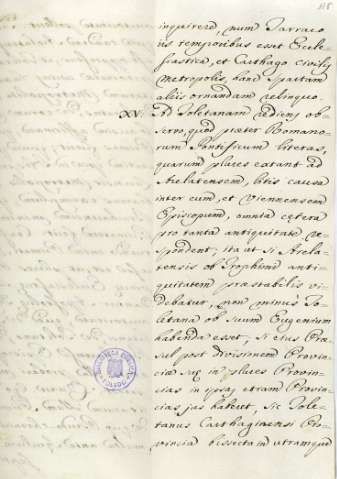 118
inquirere, num Tarraco
iis temporibus esset Eccle-
siastica, et Carthago civilis
Metropolis, hanc Spartam
aliis ornandam relinquo.
XV. Ad Toletanam rediens ob-
servo, quod præter Romano-
rum Pontificum literas,
quarum plures extant ad
Arelatensem, litis causa
inter eum, et Viennensem
Episcopum, omnia cetera
pro tanta antiquitate re-
spondent, ita ut si Arela-
tensis ob Trophimi anti-
quitatem præstabilis vi-
debatur, non minus To-
letana ob suum Eugenium
habenda esset, si eius Præ-
sul post divisionem Provin-
ciæ suæ in plures Provin-
cias in ipsas etiam Provin-
cias jus haberet, sic Tole-
tanus Carthaginensi Pro-
vincia bissecta in utramque
BIBLIOTECA PUBLICA
TOLEDO